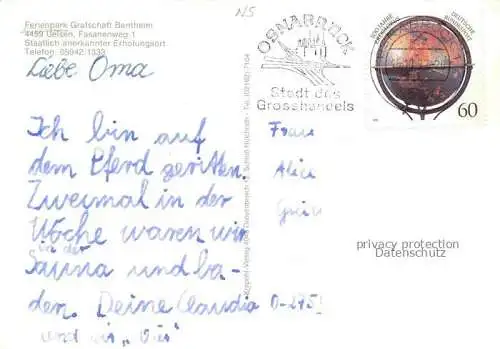 NS
Ferienpark Grafschaft Bentheim
4459 Uelsen, Fasanenweg 1
Staatlich anerkannter Erholungsort
Telefon: 05942/1333
Liebe Oma
Ich bin auf
dem Pferd geritten.
Zweimal in der
Woche waren wir
in der
Sauna und ba-
den. Deine Claudia
und
OSNABRÜCK
Stadt des
Grosshandels
500 JAHRE
DEUTSCHE
BUNDESPOST
60
Frau
Alice
privacy protection
Datenschutz